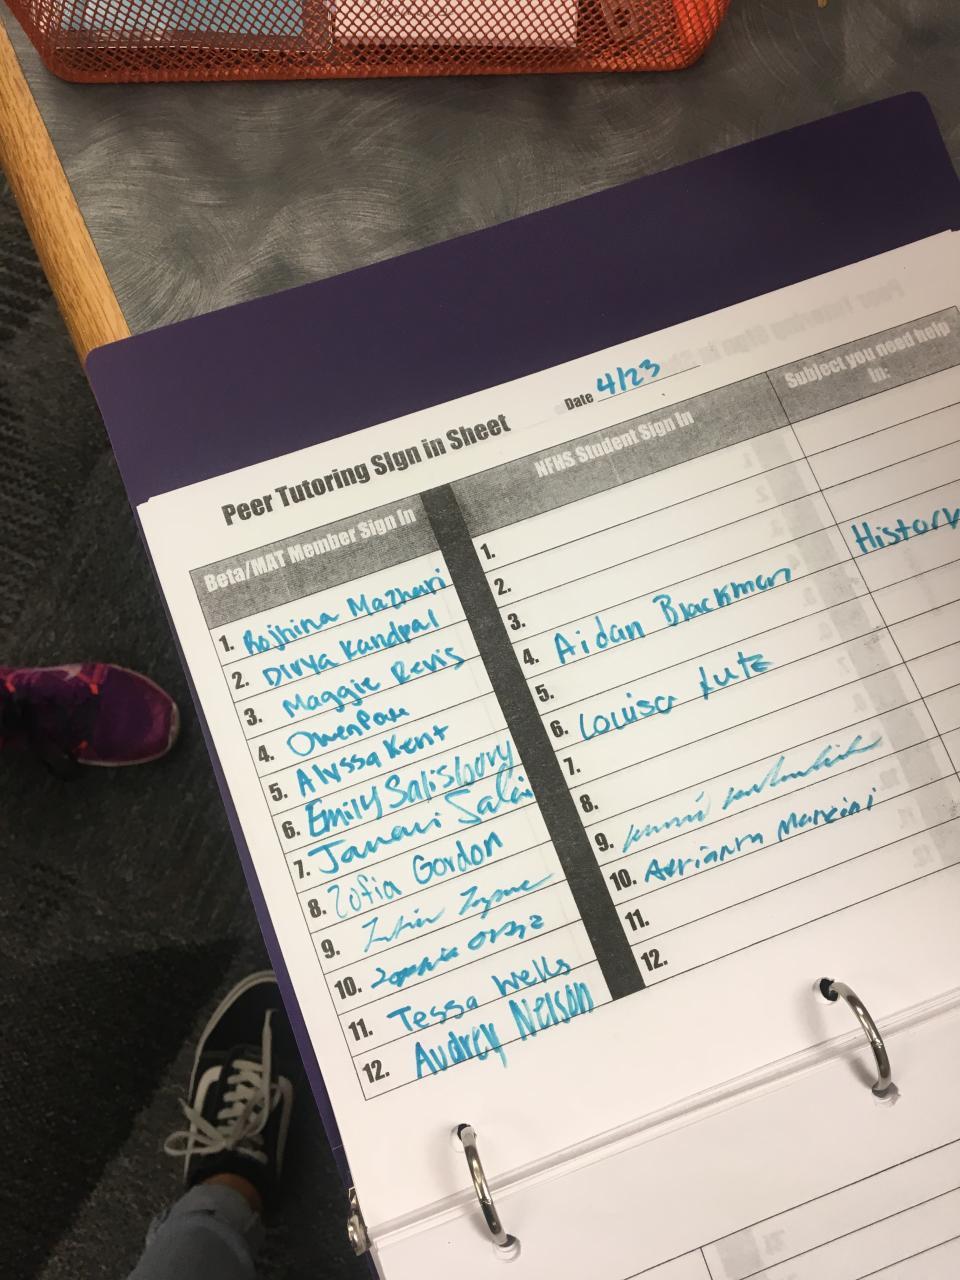 Peer Tutoring Sign in Sheet
Date 4/23
Beta/MAT Member Sign In
NFHS Student Sign In
Subject you need help in:
1. Rojhina Mazhari
2. Divya Kandpal
3. Maggie Revis
4. Owen
5. Alyssa Kent
6. Emily Salisbury
7.
8. Zofia Gordon
9.
10.
11. Tessa Wells
12. Audrey Nelson
1.
2.
3.
4. Aidan Blackman
History
5.
6. Louisa Lutz
7.
8.
9.
10. Adrianna Mancini
11.
12.